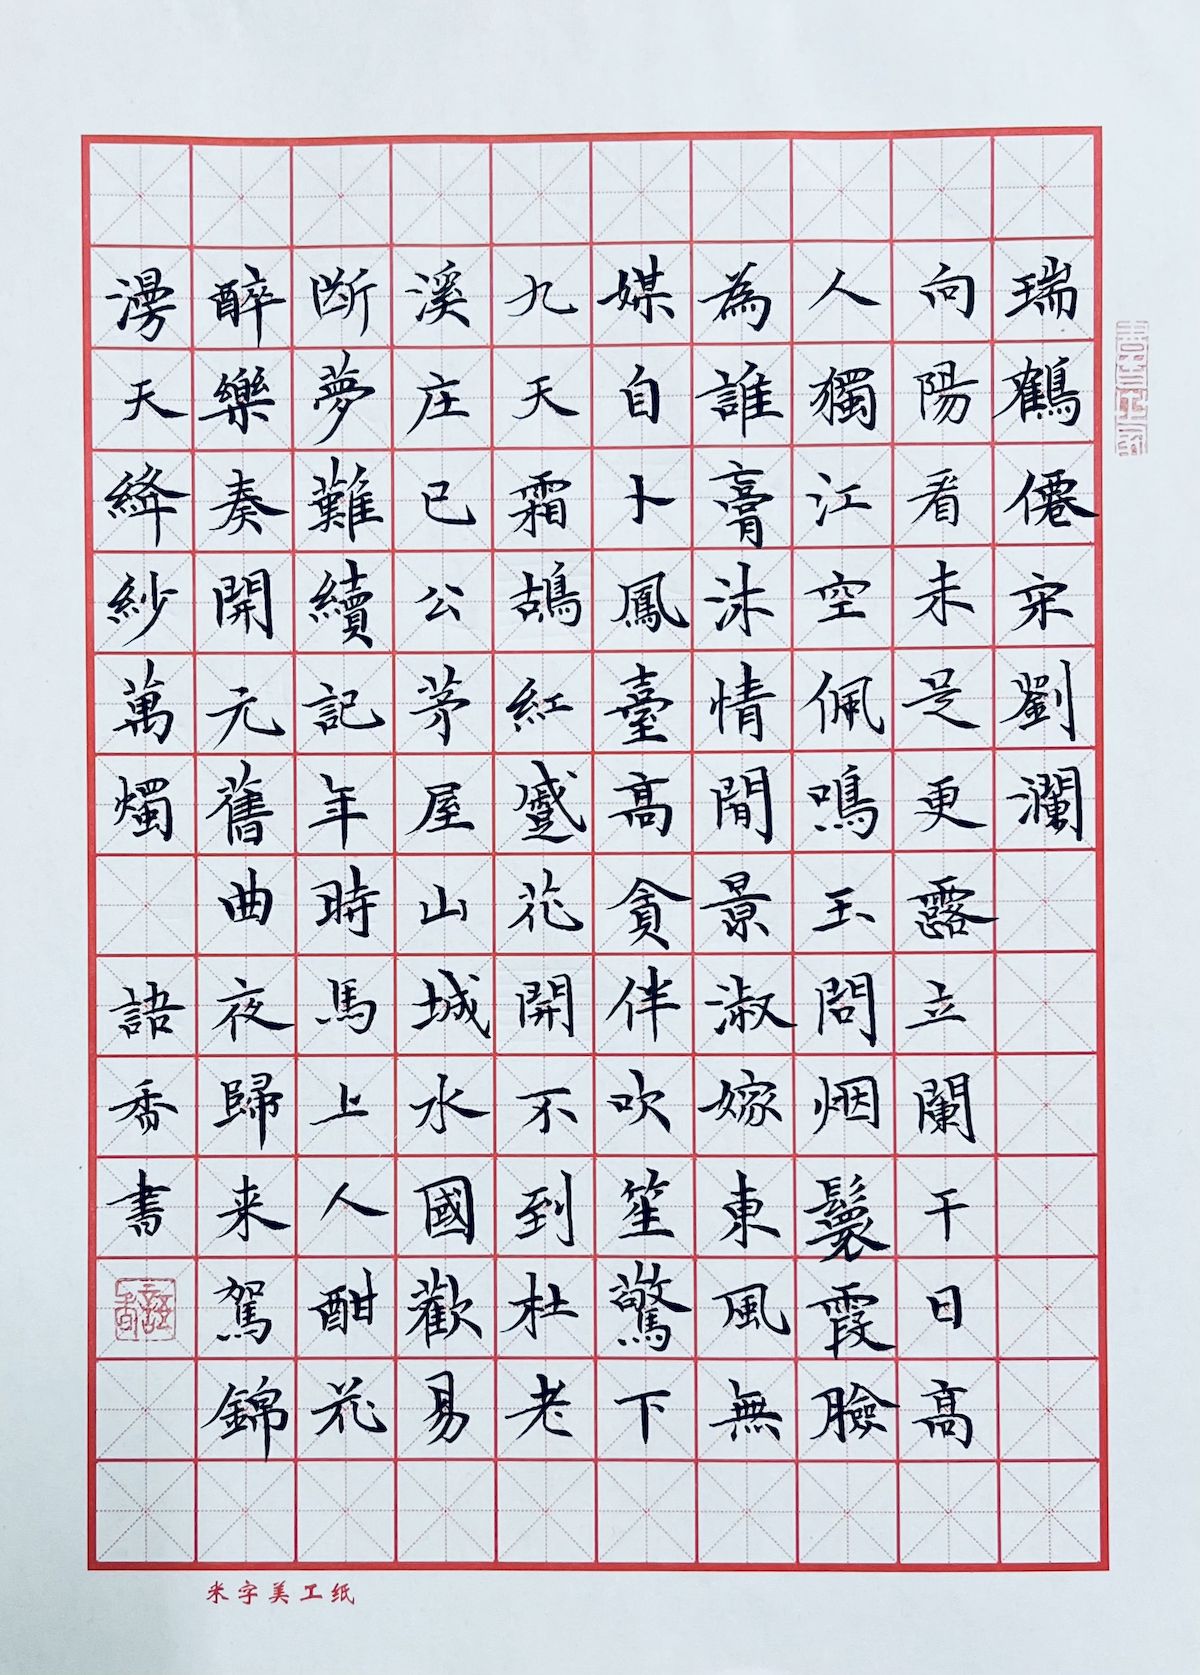 瑞鶴僊宋劉瀾
向陽看未是更露立闌干日高
人獨江空佩鳴玉問烟鬟霞臉
為誰膏沐情閒景淑嫁東風無
媒自卜鳳臺高貪伴吹笙驚下
九天霜鴣紅蹙花開不到杜老
溪庄已公茅屋山城水國歡易
斷夢難續記年時馬上人酣花
醉樂奏開元舊曲夜歸来駕錦
漫天絳紗萬燭
語香書
語香
米字美工纸